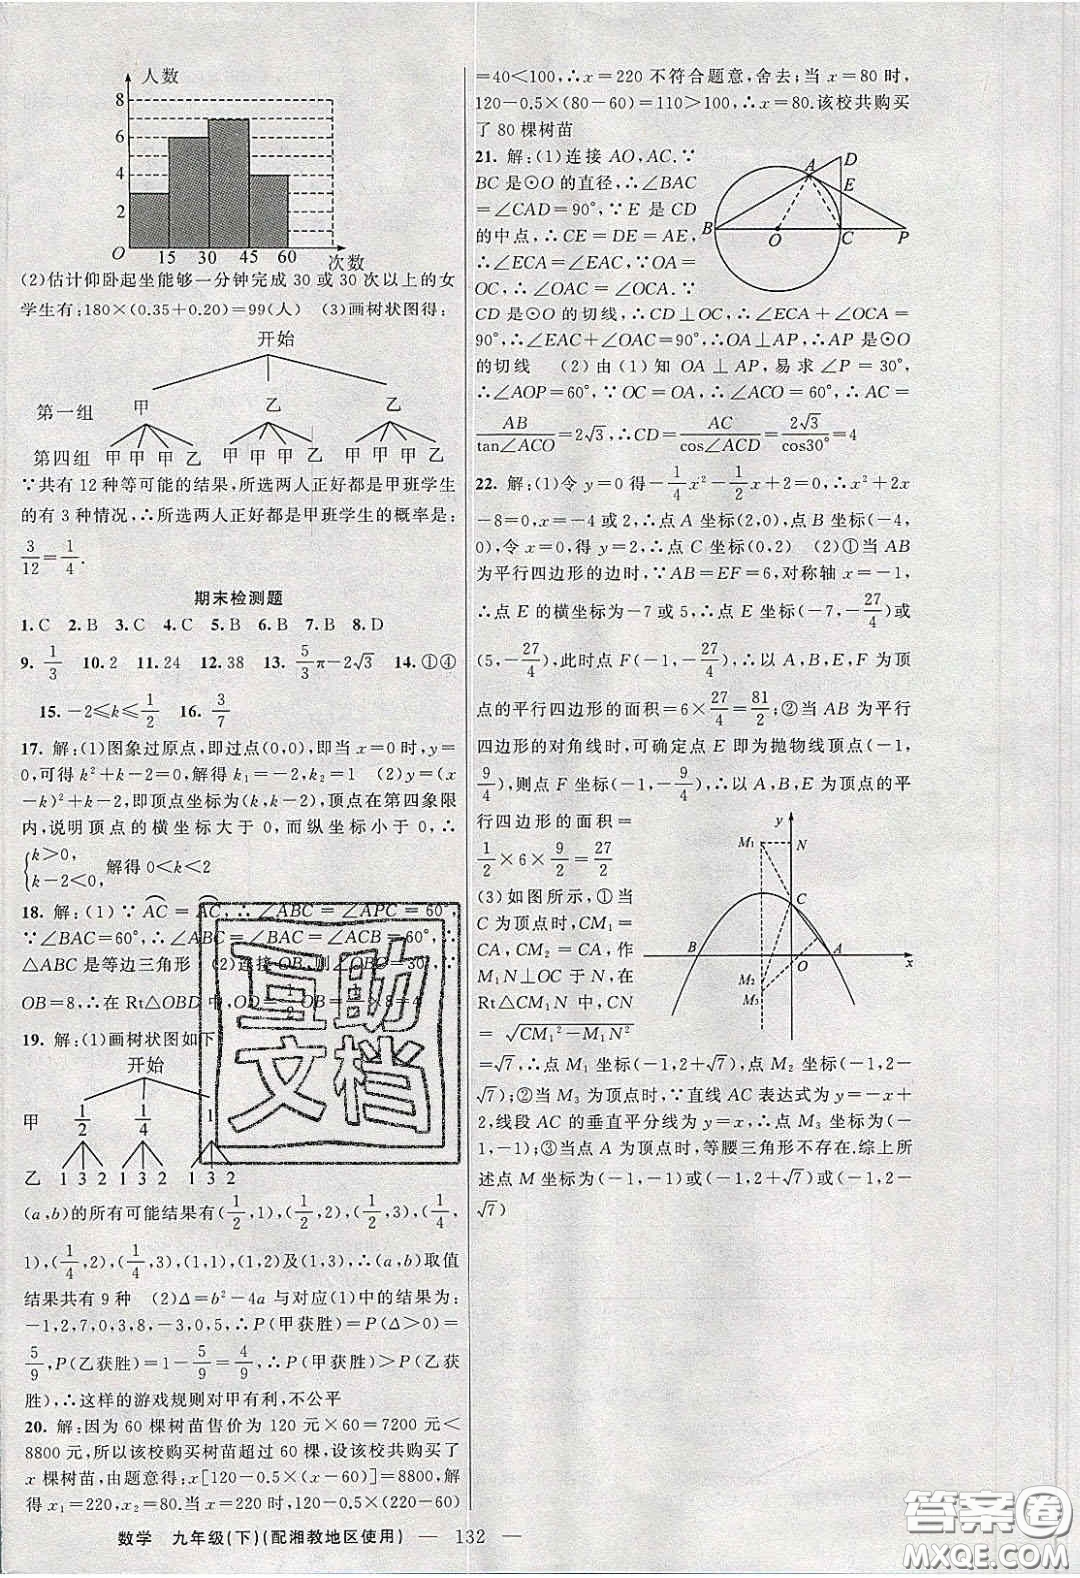 人数
8
6
4
2
O 15 30 45 60 次数
(2)估计仰卧起坐能够一分钟完成 30 或 30 次以上的女
学生有:180×(0.35+0.20)=99(人) (3)画树状图得:
开始
第一组 甲 乙 乙
第四组 甲 甲 甲 乙 甲 甲 甲 乙 甲 甲 甲 乙
∵共有 12 种等可能的结果,所选两人正好都是甲班学生
的有 3 种情况,∴所选两人正好都是甲班学生的概率是:
3/12=1/4.
期末检测题
1.C 2.B 3.C 4.C 5.B 6.B 7.B 8.D
9. 1/3 10.2 11.24 12.38 13. 5/3π-2√3 14.①④
15.-2≤k≤1/2 16. 3/7
17. 解:(1)图象过原点,即过点(0,0),即当 x=0 时,y=
0,可得 k²+k-2=0,解得 k₁=-2,k₂=1 (2)y=(x
-k)²+k-2,即顶点坐标为(k,k-2),顶点在第四象限
内,说明顶点的横坐标大于 0,而纵坐标小于 0,∴
{k>0, k-2<0, 解得 0<k<2
18. 解:(1)∵AC=AC,∴∠ABC=∠APC=60°,
∵∠BAC=60°,∴∠ABC=∠BAC=∠ACB=60°,∴
△ABC 是等边三角形 (2)连接 OB,则∠OBD=30°,∵
OB=8,∴在 Rt△OBD 中,OD=1/2OB=1/2×8=4
19. 解:(1)画树状图如下
开始
甲 1/2 1/4 1
乙 1 3 2 1 3 2 1 3 2
(a,b)的所有可能结果有(1/2,1),(1/2,2),(1/2,3),(1/4,
1),(1/4,2),(1/4,3),(1,1),(1,2)及(1,3),∴(a,b)取值
结果共有 9 种 (2)Δ=b²-4a 与对应(1)中的结果为:
-1,2,7,0,3,8,-3,0,5,∴P(甲获胜)=P(Δ>0)=
5/9,P(乙获胜)=1-5/9=4/9,∴P(甲获胜)>P(乙获
胜),∴这样的游戏规则对甲有利,不公平
20. 解:因为 60 棵树苗售价为 120 元×60=7200 元<
8800 元,所以该校购买树苗超过 60 棵,设该校共购买了
x 棵树苗,由题意得:x[120-0.5×(x-60)]=8800,解
得 x₁=220,x₂=80.当 x=220 时,120-0.5×(220-60)
=40<100,∴x=220 不符合题意,舍去;当 x=80 时,
120-0.5×(80-60)=110>100,∴x=80.该校共购买
了 80 棵树苗
21. 解:(1)连接 AO,AC.∵
BC 是⊙O 的直径,∴∠BAC
=∠CAD=90°,∵E 是 CD
的中点,∴CE=DE=AE,
∴∠ECA=∠EAC,∵OA=
OC,∴∠OAC=∠OCA,∵
CD 是⊙O 的切线,∴CD⊥OC,∴∠ECA+∠OCA=
90°,∴∠EAC+∠OAC=90°,∴OA⊥AP,∴AP 是⊙O
的切线 (2)由(1)知 OA⊥AP,易求∠P=30°,
∴∠AOP=60°,∵OC=OA,∴∠ACO=60°,∴AC=
AB/tan∠ACO=2√3,∴CD=AC/cos∠ACD=2√3/cos30°=4
A D E B O C P
22. 解:(1)令 y=0 得-1/4x²-1/2x+2=0,∴x²+2x
-8=0,x=-4 或 2,∴点 A 坐标(2,0),点 B 坐标(-4,
0),令 x=0,得 y=2,∴点 C 坐标(0,2) (2)①当 AB
为平行四边形的边时,∵AB=EF=6,对称轴 x=-1,
∴点 E 的横坐标为-7 或 5,∴点 E 坐标(-7,-27/4)或
(5,-27/4),此时点 F(-1,-27/4),∴以 A,B,E,F 为顶
点的平行四边形的面积=6×27/4=81/2;②当 AB 为平行
四边形的对角线时,可确定点 E 即为抛物线顶点(-1,
9/4),则点 F 坐标(-1,-9/4),∴以 A,B,E 为顶点的平
行四边形的面积=
1/2×6×9/2=27/2
(3)如图所示,①当
C 为顶点时,CM₁=
CA,CM₂=CA,作
M₁N⊥OC 于 N,在
Rt△CM₁N 中,CN
=√CM₁²-M₁N²
=√7,∴点 M₁ 坐标(-1,2+√7),点 M₂ 坐标(-1,2-
√7);②当 M₃ 为顶点时,∵直线 AC 表达式为=-x+
2,线段 AC 的垂直平分线为 y=x,∴点 M₃ 坐标为(-
1,-1);③当点 A 为顶点时,等腰三角形不存在.综上所
述点 M 坐标为(-1,-1)或(-1,2+√7)或(-1,2-
√7)
y M₁ N C B A O x M₂ M₃
互助
文档
数学 九年级(下)(配湘教地区使用) — 132 —
答案圈
MXQE.COM